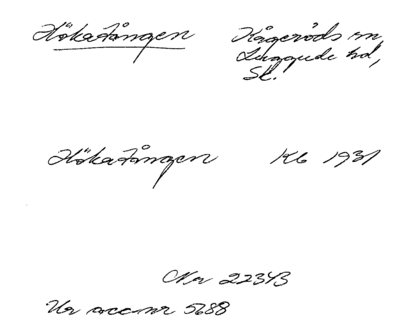 Hökatången Kågeröds sn,
Luggude hd,
Sk.
Hökatången Kb 1931
Nr 2273
Ur acc.nr 5688